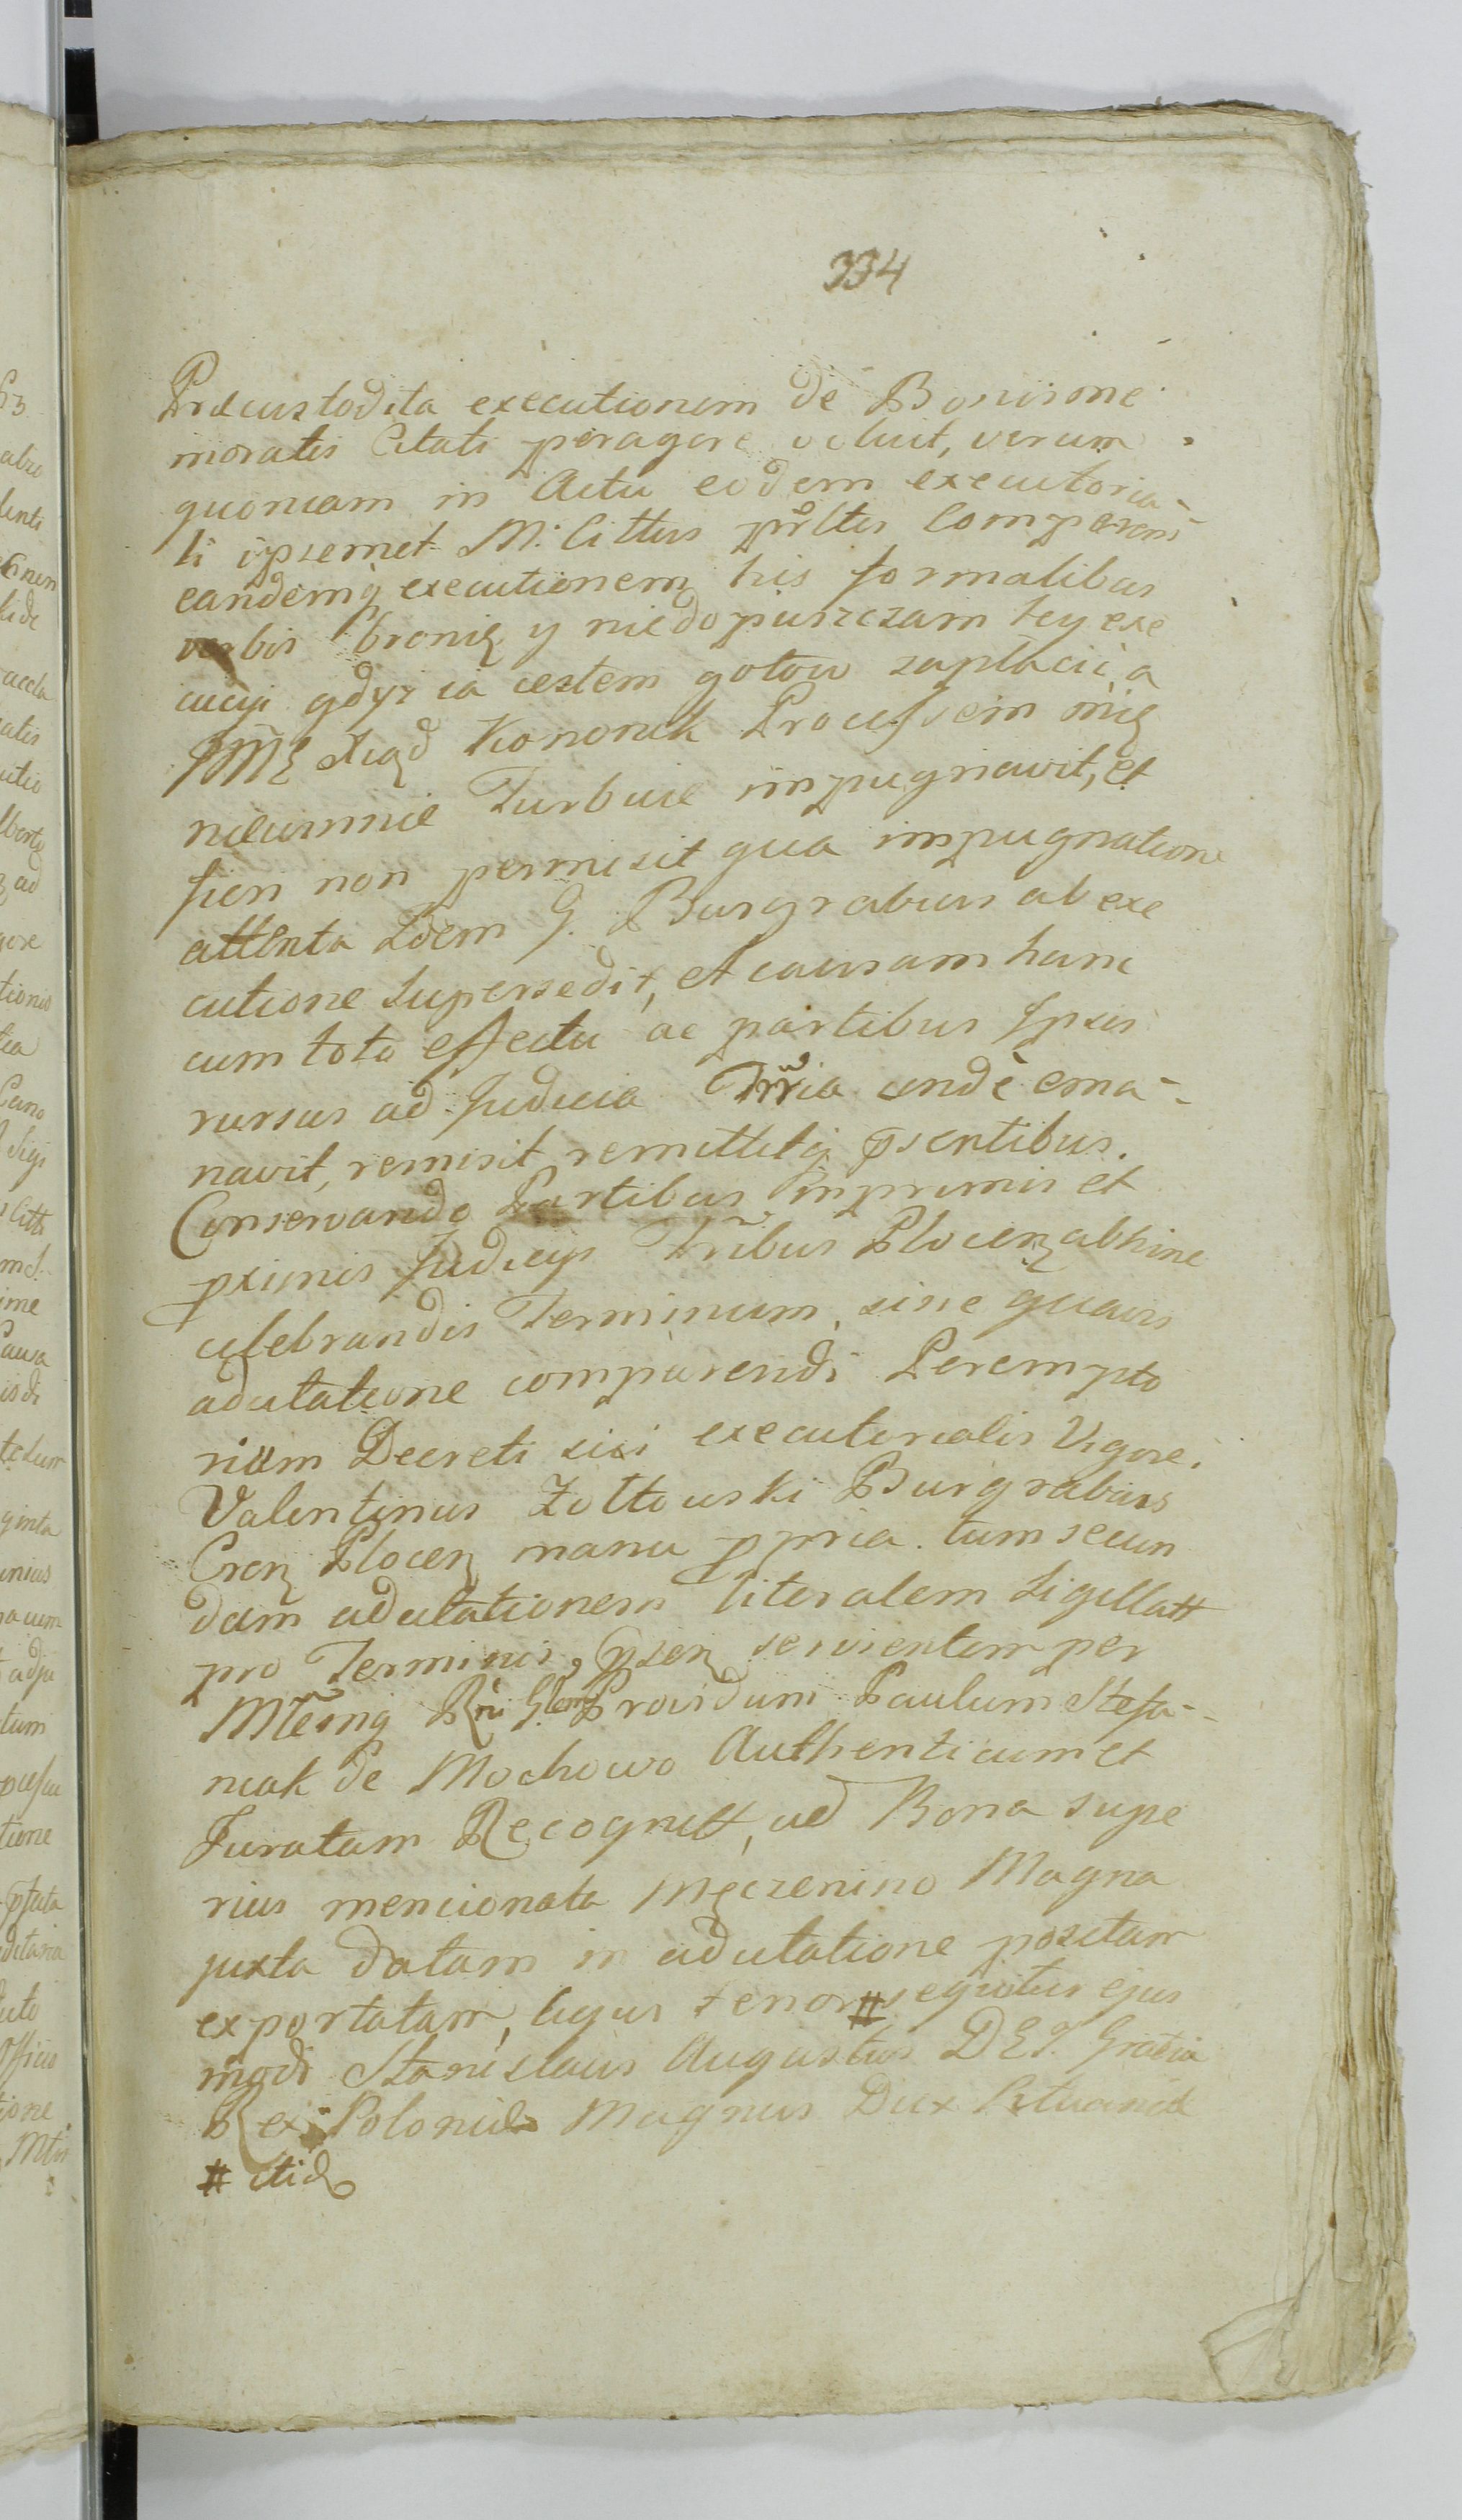 334
Præcustodita executionem de Bonis me
moratis Citati peragere voluit, verum
quoniam in Actu eodem executoria-
li ipsemet M. Cittus pñltes Comparens
eandemq̨ executionem his formalibus
verbis bronię y niedopuszczam tey exe
cucyi gdyż ia iestem gotow zapłacić, a
JMę Xiądz Kanonik Processem mię
niewinnie Turbuie impugnavit, et
fieri non permisit qua impugnatione
attenta Idem G. Burgrabius ab exe
cutione supersedit, et causam hanc
cum toto effectu ac partibus Ipsis
rursus ad Judicia Trria unde ema-
navit, remisit remittitq̨ psentibus.
Conservando Partibus inprimis et
pximis Judicijs Tribus Plocen abhinc
celebrandis Terminum, sine quavis
adcitatione comparendi Perempto
rium Decreti sui executorialis Vigore.
Valentinus Zołtowski Burgrabius
Cren Plocen manu ppria. tum secun
dam adcitationem literalem Sigillatt
pro Terminis, psen servientem per
Mtemq Rni Glem Providum Paulum Stefa-
niak de Mochowo Authenticum et
Juratum Recognitt, ad Bona supe
rius mencionata Męczenino Magna
juxta datam in adcitatione positam
exportatam, cujus tenor # sequitur ejus
modi Stanislaus Augustus DEI. Gratia
Rex Poloniæ Magnus Dux Lituaniæ